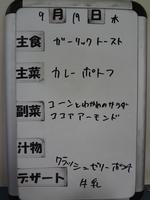 9月19日 水
主食 ガーリックトースト
主菜 カレーポトフ
副菜 コーンとわかめのサラダ
ココアアーモンド
汁物
クラッシュゼリーポンチ
デザート 牛乳